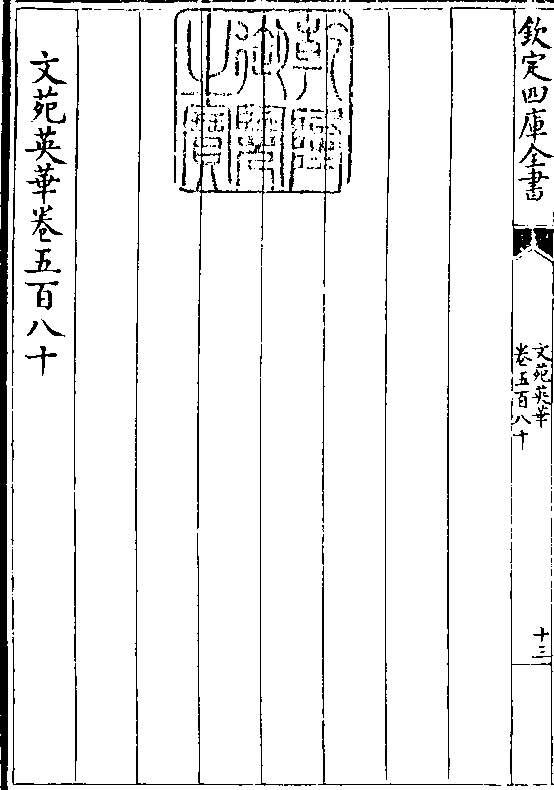 欽定四庫全書
文苑英華
卷五百八十
十三
乾隆御覽之寶
文苑英華卷五百八十